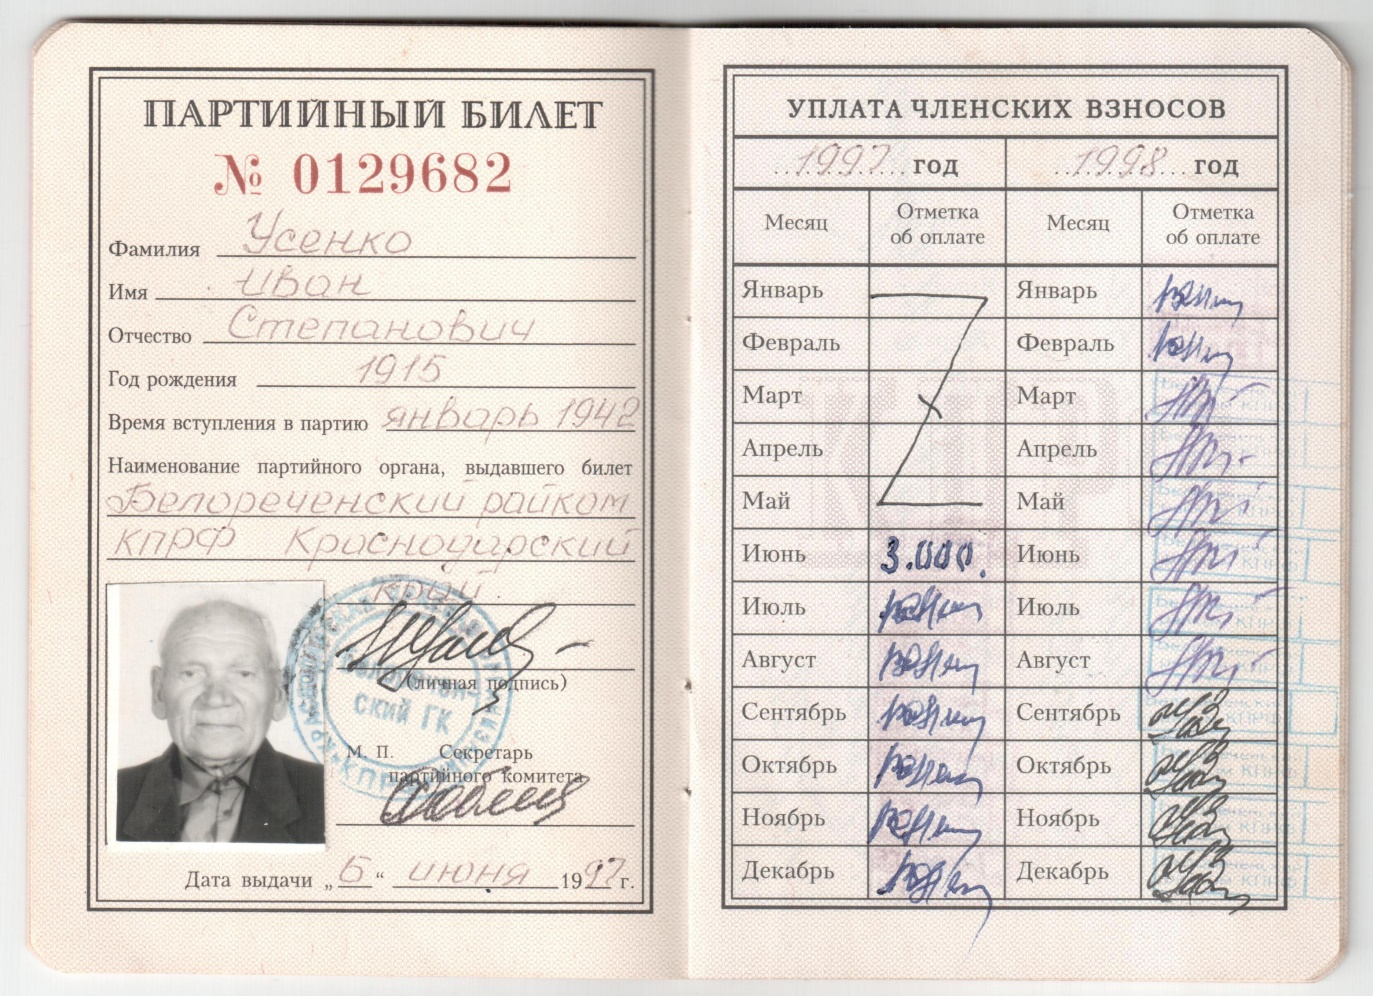 ПАРТИЙНЫЙ БИЛЕТ
№ 0129682
Фамилия Усенко
Имя Иван
Отчество Степанович
Год рождения 1915
Время вступления в партию январь 1942
Наименование партийного органа, выдавшего билет
Белореченский райком
КПРФ Краснодарский
край.
(личная подпись)
ский ГК
М. П. Секретарь
партийного комитета
Дата выдачи „6“ июня 1997 г.
УПЛАТА ЧЛЕНСКИХ ВЗНОСОВ
1997 год 1998 год
Месяц Отметка об оплате Месяц Отметка об оплате
Январь Январь
Февраль Февраль
Март Март
Апрель Апрель
Май Май
Июнь 3.000. Июнь
Июль Июль
Август Август
Сентябрь Сентябрь
Октябрь Октябрь
Ноябрь Ноябрь
Декабрь Декабрь